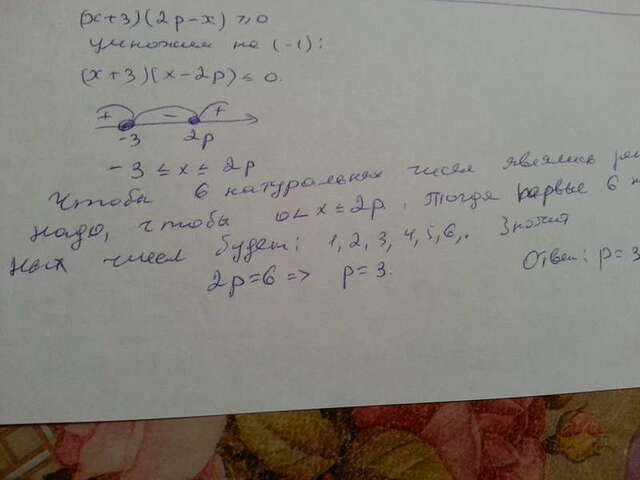 (x+3)(2p-x) ≥ 0
умножим на (-1):
(x+3)(x-2p) ≤ 0.
+ - +
-3 2p
-3 ≤ x ≤ 2p
Чтобы 6 натуральных чисел являлись
надо, чтобы 0 < x ≤ 2p. Тогда первые 6
ных чисел будет: 1, 2, 3, 4, 5, 6,. Значит
2p=6 => p=3.
Ответ: p=3